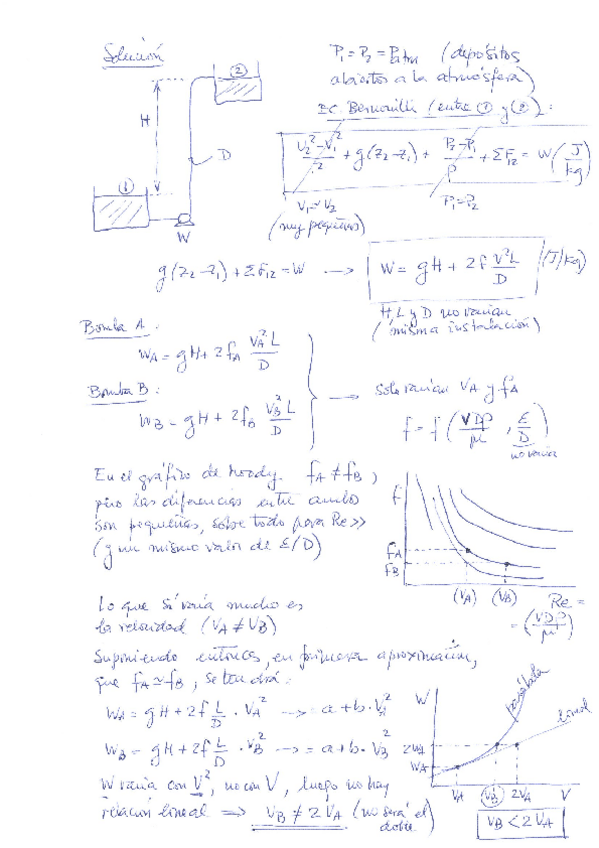 Solución
P₁ = P₂ = Patm (depósitos
abiertos a la atmósfera)
Ec. Bernouilli (entre ① y ②):
②
H
D
①
W
(V₂² - V₁²)/2 + g(z₂ - z₁) + (P₂ - P₁)/ρ + ΣF₁₂ = W (J/kg)
V₁ ≃ V₂
(muy pequeñas)
P₁ = P₂
g(z₂ - z₁) + ΣF₁₂ = W → W = gH + 2f V²L/D (J/kg)
H, L y D no varían
(misma instalación)
Bomba A:
W_A = gH + 2f_A V_A² L/D
Bomba B:
W_B = gH + 2f_B V_B² L/D
→ Solo varían V_A y f_A
f = f (VDρ/μ, ε/D)
no varía
En el gráfico de Moody f_A ≠ f_B,
pero las diferencias entre ambos
son pequeñas, sobre todo para Re >>
(y un mismo valor de ε/D)
f
f_A
f_B
(V_A) (V_B) Re =
= (VDρ/μ)
Lo que sí varía mucho es
la velocidad (V_A ≠ V_B)
Suponiendo entonces, en primera aproximación,
que f_A ≃ f_B, se tendrá:
W_A = gH + 2f L/D · V_A² → = a + b·V_A²
W_B = gH + 2f L/D · V_B² → = a + b·V_B²
W varía con V², no con V, luego no hay
relación lineal ⟹ V_B ≠ 2V_A (no será el
doble)
W
parábola
lineal
2W_A
W_A
V_A V_B 2V_A V
V_B < 2V_A